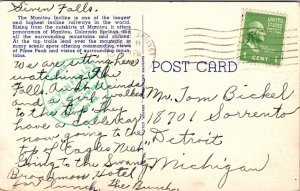 Seven Falls.
The Manitou Incline is one of the longest
and highest incline railways in the world.
Rising from the outskirts of Manitou, it offers
panoramas of Manitou, Colorado Springs, and
all the surrounding mountains and
At the top trails lead over the mountain to
many scenic spots offering commanding views
of Pikes Peak and vistas of surrounding moun-
tains.
We are sitting here
watching the
Falls. And the
and a girl
to the
have a
now going to the
top of "Eagles Nest"
to the Swanky
Broadmoor Hotel
for lunch. The Bunch.
POST CARD
UNITED
STATES
POSTAGE
1
CENT
Mr. Tom Bickel
18701 Sorrento
Detroit
Michigan